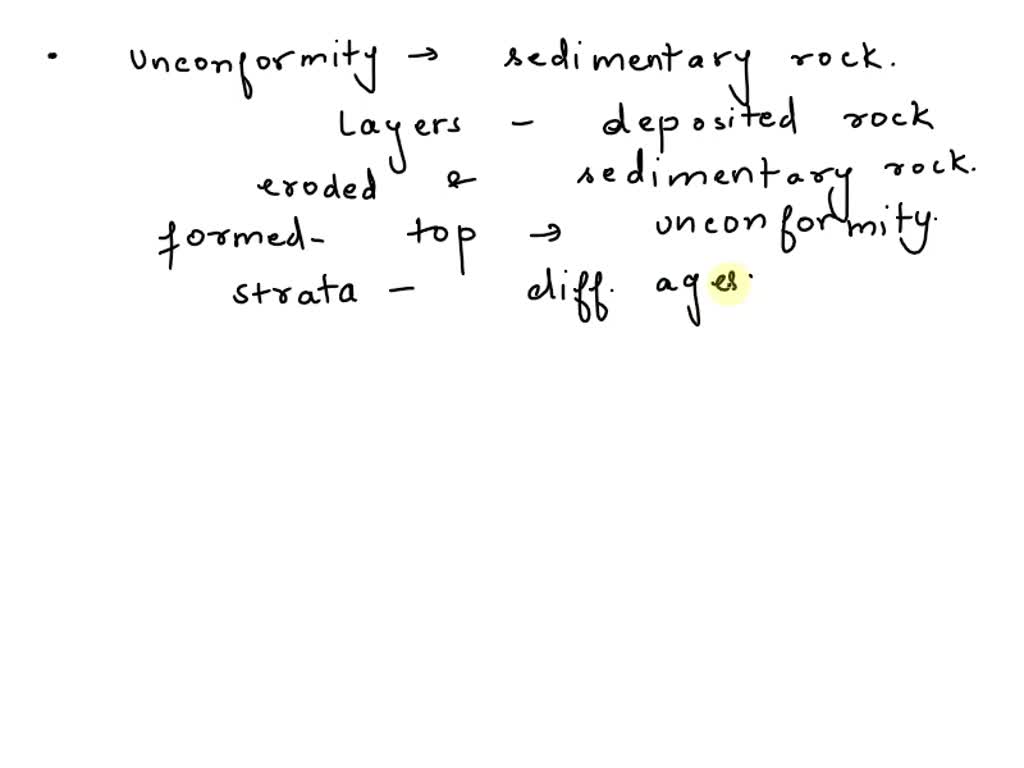 • unconformity → sedimentary rock.
Layers - deposited rock
eroded & sedimentary rock.
formed- top → unconformity.
strata - diff. ages.